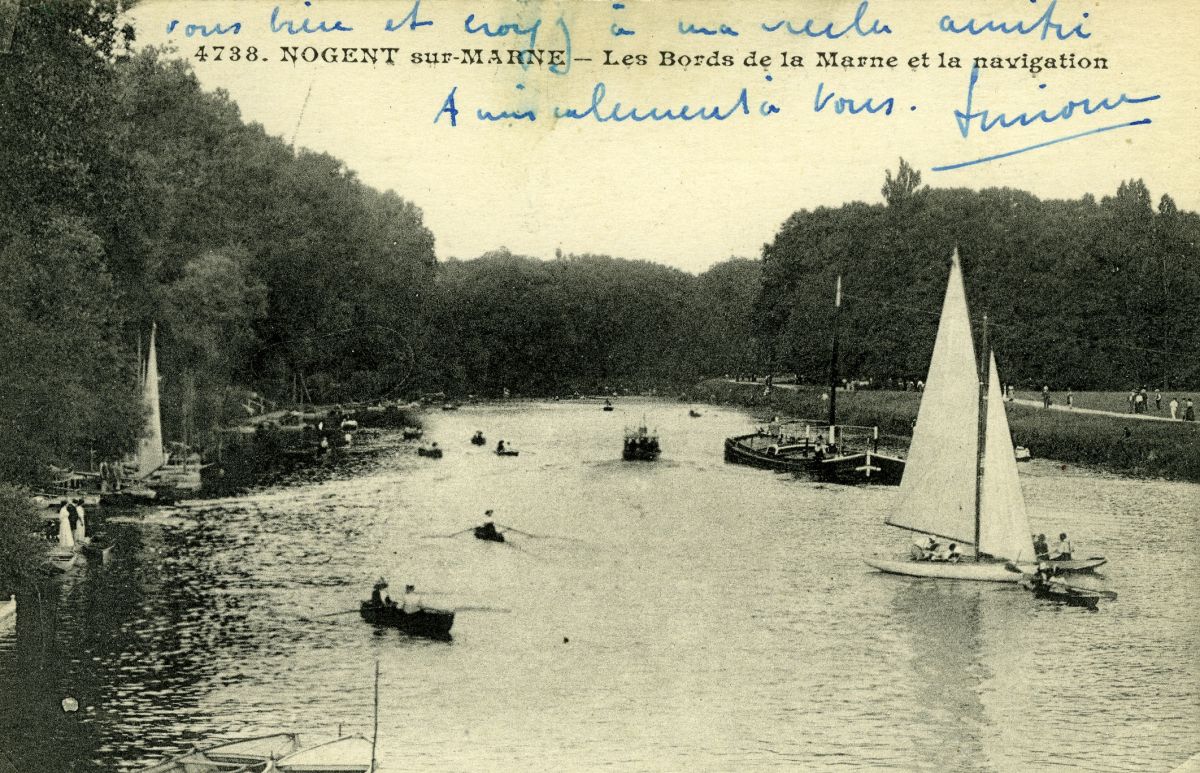 vous bien et croyez à ma reelle amitié
4738. NOGENT sur-MARNE — Les Bords de la Marne et la navigation
Amicalement à vous. Simone